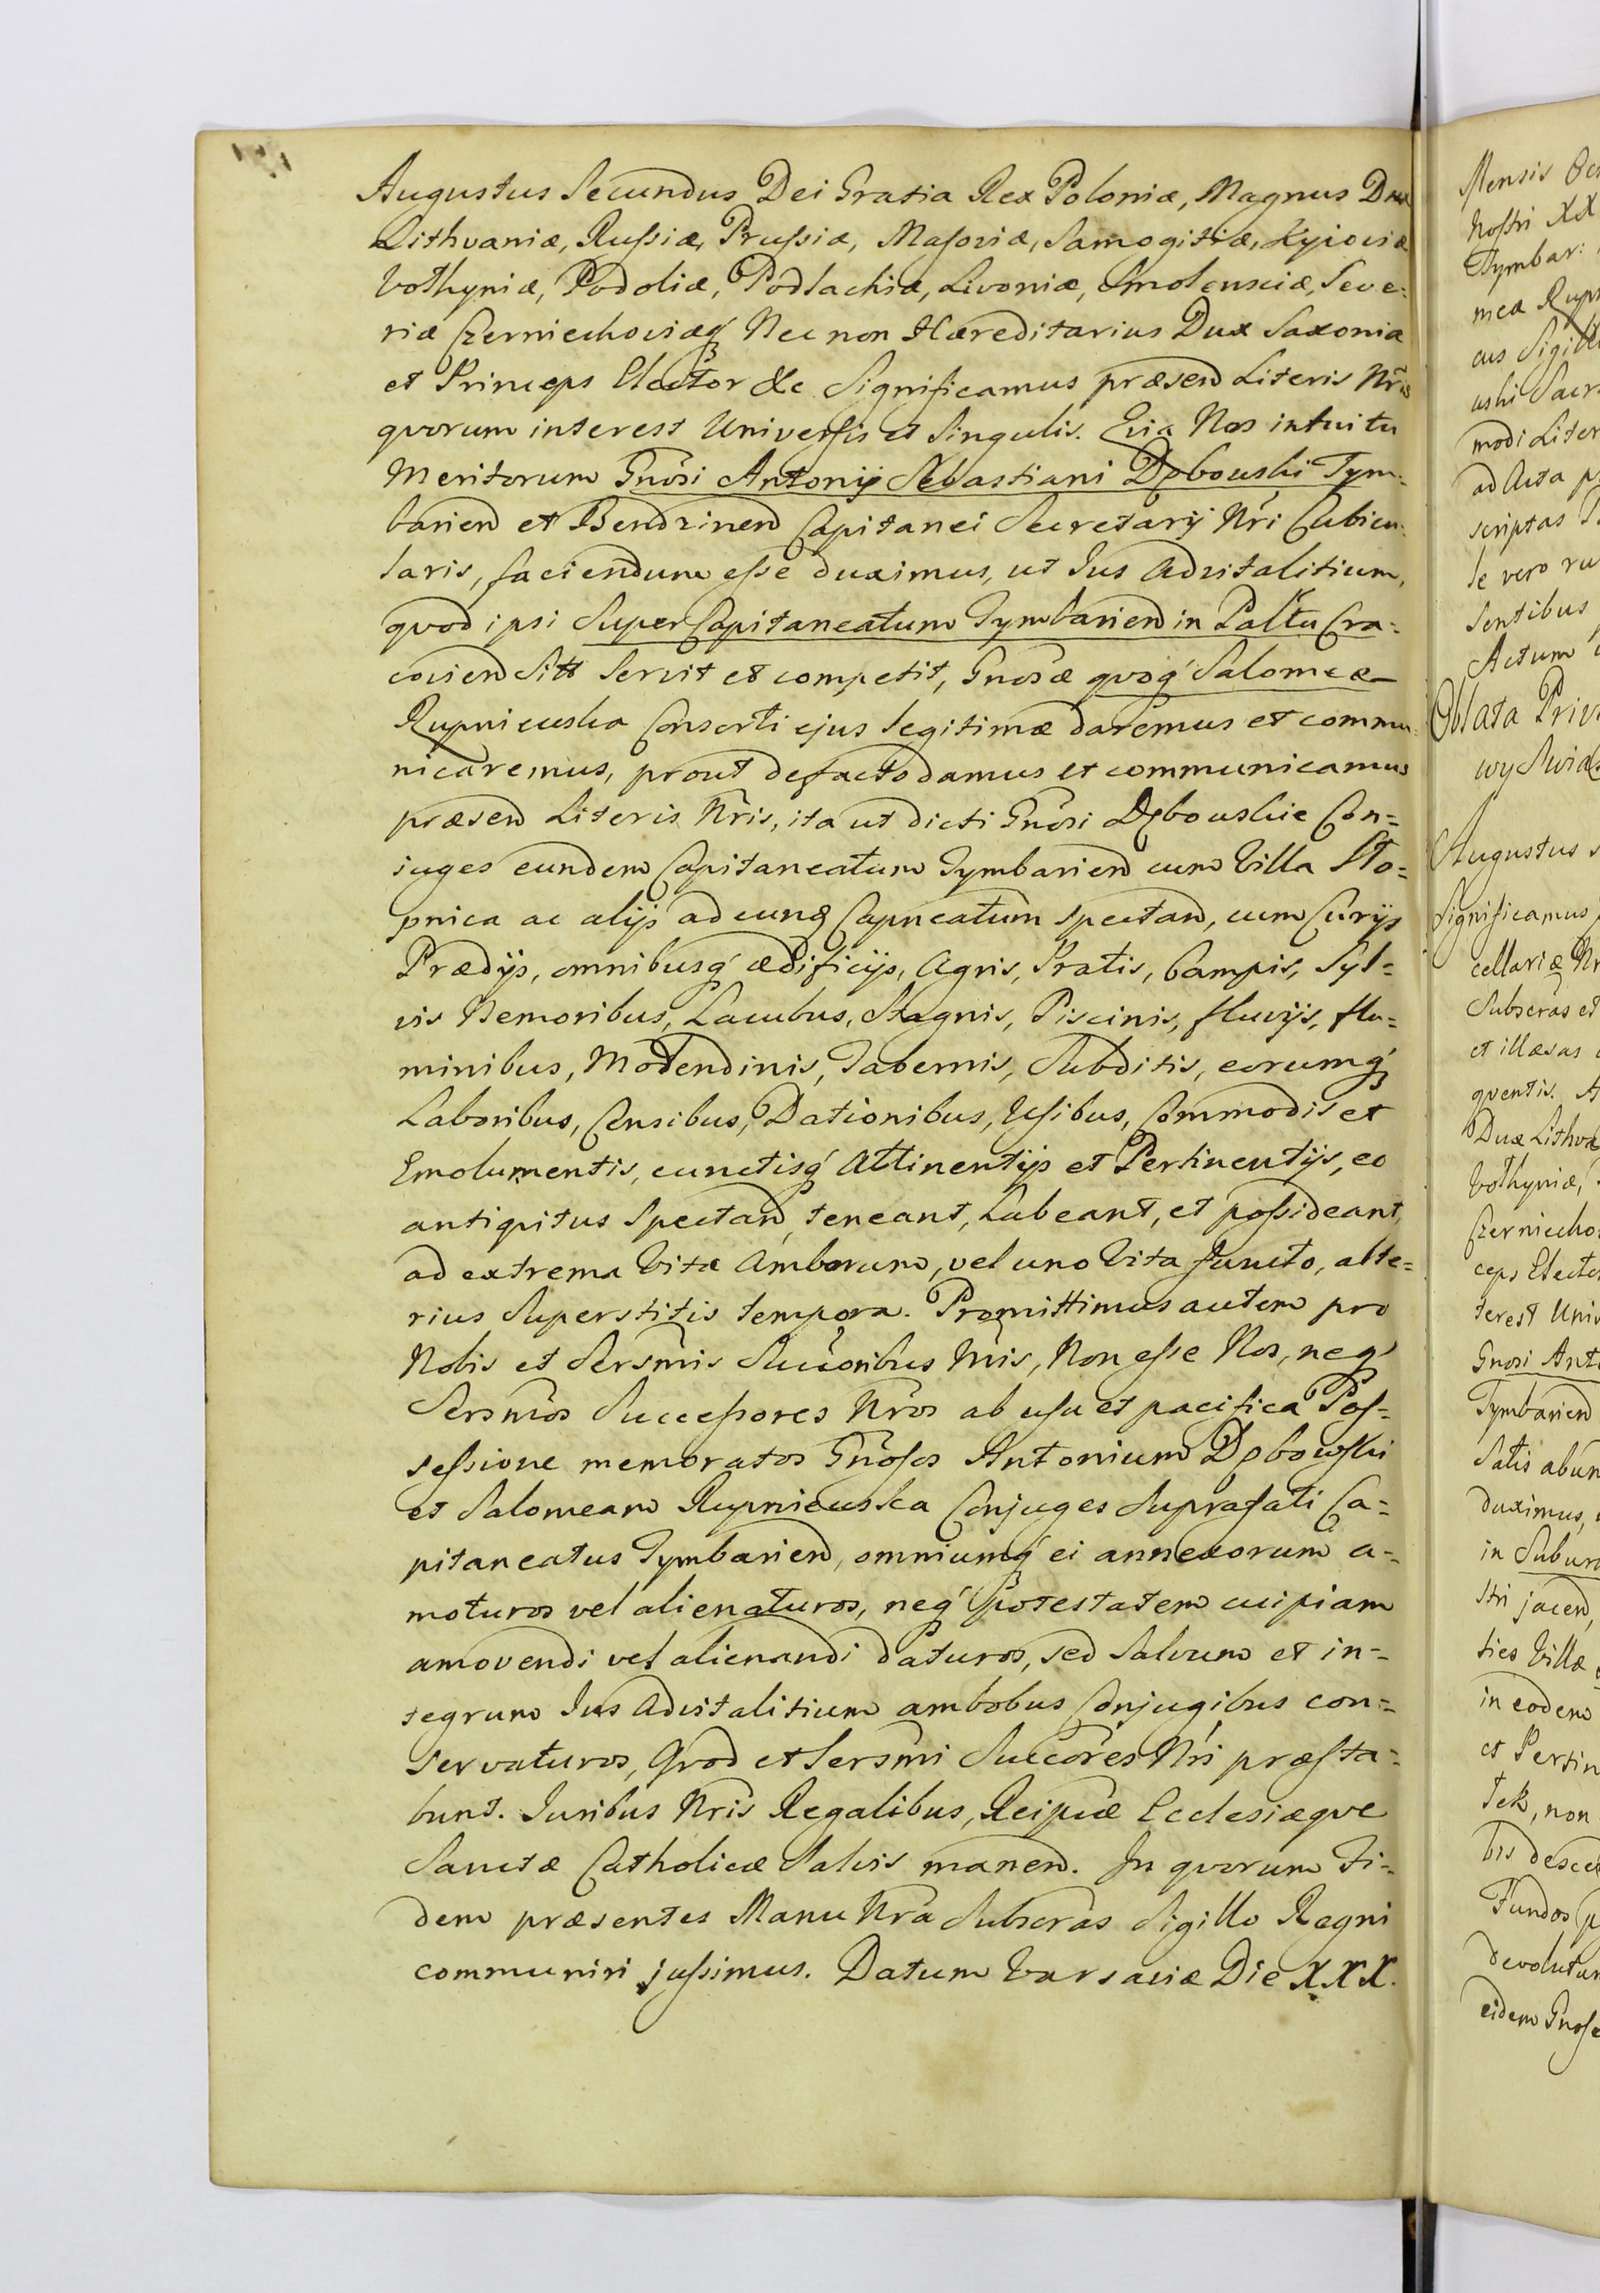 Augustus Secundus Dei Gratia Rex Poloniæ, Magnus Dux
Lithvaniæ, Rußiæ, Prußiæ, Masoviæ, Samogitiæ, Kyioviæ
Volhyniæ, Podoliæ, Podlachiæ, Livoniæ, Smolensciæ, Seve:
riæ Czerniechoviæq́ Nec non Hæreditarius Dux Saxoniæ
et Princeps Elector &c Significamus præsen Literis Nris
quorum interest Universis et Singulis. Quia Nos intuitu
Meritorum Gnosi Antonij Sebastiani Dębowski Tym-
barien et Bendzinen Capitanei Secretarij Nri Cubicu-
laris, faciendum esse duximus, ut Jus Advitalitium,
quod ipsi Super Capitaneatum Tymbarien in Palttu Cra:
covien Sitt Servit et competit, Gnosæ quoq́ Salomeæ
Rupniewska Consorti ejus legitimæ daremus et commu-
nicaremus, prout defacto damus et communicamus
præsen Literis Nris, ita ut dicti Gnosi Dębowskie Con=
iuges eundem Capitaneatum Tymbarien cum Villa Sło=
pnica ac alijs ad eunq Capneatum spectan, cum Curijs
Prædijs, omnibusq́ ædificijs, Agris, Pratis, Campis, Syl=
vis Nemoribus, Lacubus, Stagnis, Piscinis, fluvijs, flu=
minibus, Molendinis, Tabernis, Subditis, eorumq́
Laboribus, Censibus, Dationibus, Usibus, Commodis et
Emolumentis, cunctisq́ Attinentijs et Pertinentijs, eo
antiqvitus Spectan, teneant, habeant, et poßideant,
ad extrema Vitæ Amborum, vel uno Vita functo, alte=
rius Superstitis tempora. Promittimus autem pro
Nobis et Sersmis Succoribus Nris, Non esse Nos, neq́
Sersmos Succeßores Nros ab usu et pacifica Pos=
seßione memoratos Gnosos Antonium Dębowski
et Salomeam Rupniewska Conjuges Suprafati Ca=
pitaneatus Tymbarien, omniumq́ ei annexorum a=
moturos vel alienaturos, neq́ potestatem cuipiam
amovendi vel alienandi daturos, sed Salvum et in=
tegrum Jus Advitalitium ambobus Conjugibus con=
servaturos, Qvod et Sersmi Succores Nri præsta=
bunt. Juribus Nris Regalibus, Reipcæ Ecclesiæqve
Sanctæ Catholicæ Salvis manen. In qvorum Fi=
dem præsentes Manu Nra Subscras Sigillo Regni
communiri jußimus. Datum Varsaviæ Die XXX.
Mensis
Nostri XX
Tymbar:
mea
modi Liter
ad Acta
scriptas
se vero
sentibus
Actum
Oblata
Augustus
Significamus
cellariæ
Subscras et
et illæsas
qventis.
Dux Lithva
Volhyniæ,
Czerniecho
ceps Elector
terest Univ
Gnosi Anto
Tymbarien
Satis abun
duximus,
in Suburb
stri jacen,
ties Villæ
in eodem
et Pertin
non
bis
Fundos
devolutum
eidem Gnoso